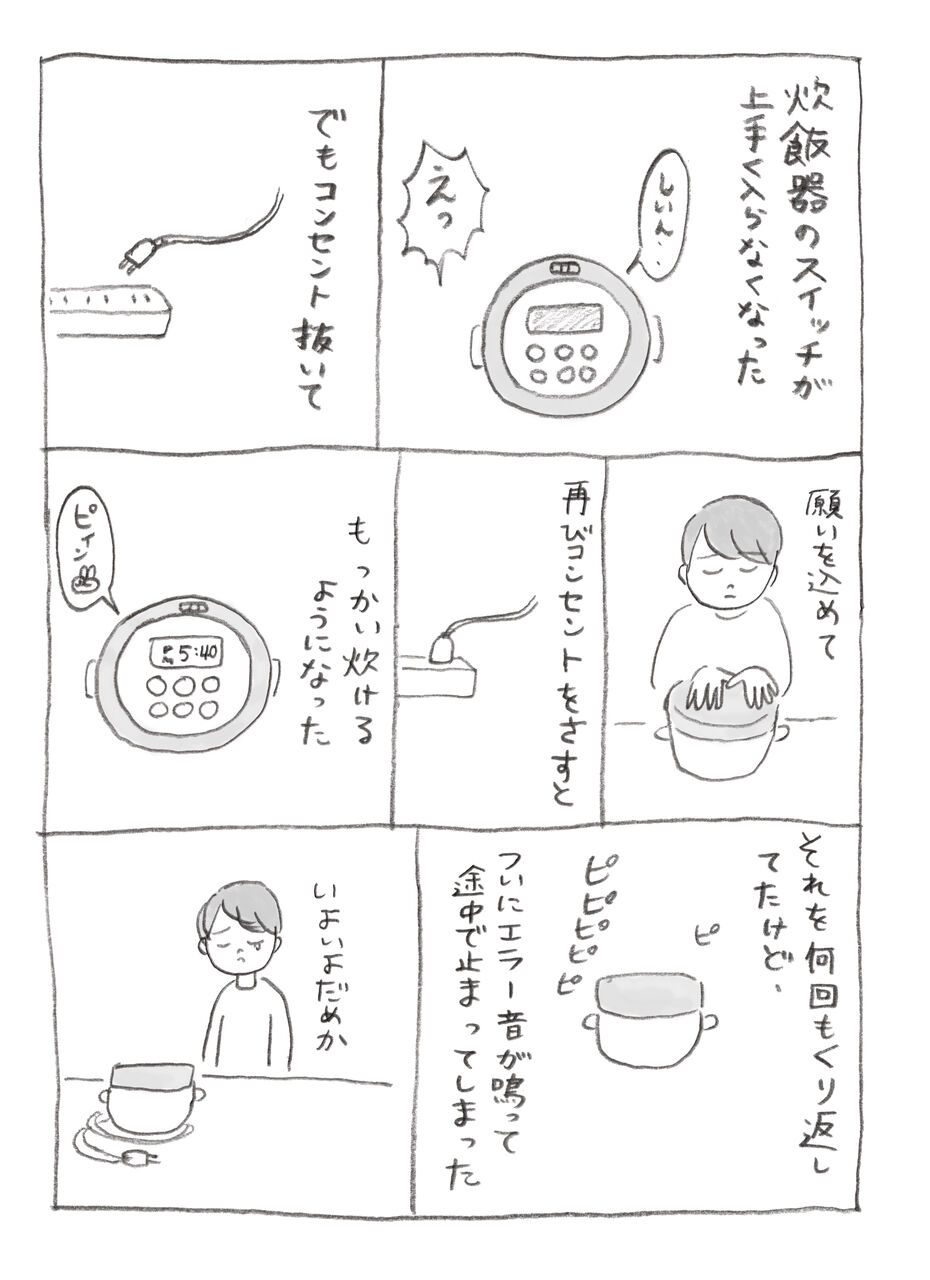 炊飯器のスイッチが
上手く入らなくなった
しいん..
えっ
でもコンセント抜いて
願いを込めて
再びコンセントをさすと
もっかい炊ける
ようになった
ピィン
5:40
それを何回もくり返し
てたけど、
ピ
ピピピピピ
ついにエラー音が鳴って
途中で止まってしまった
いよいよだめか